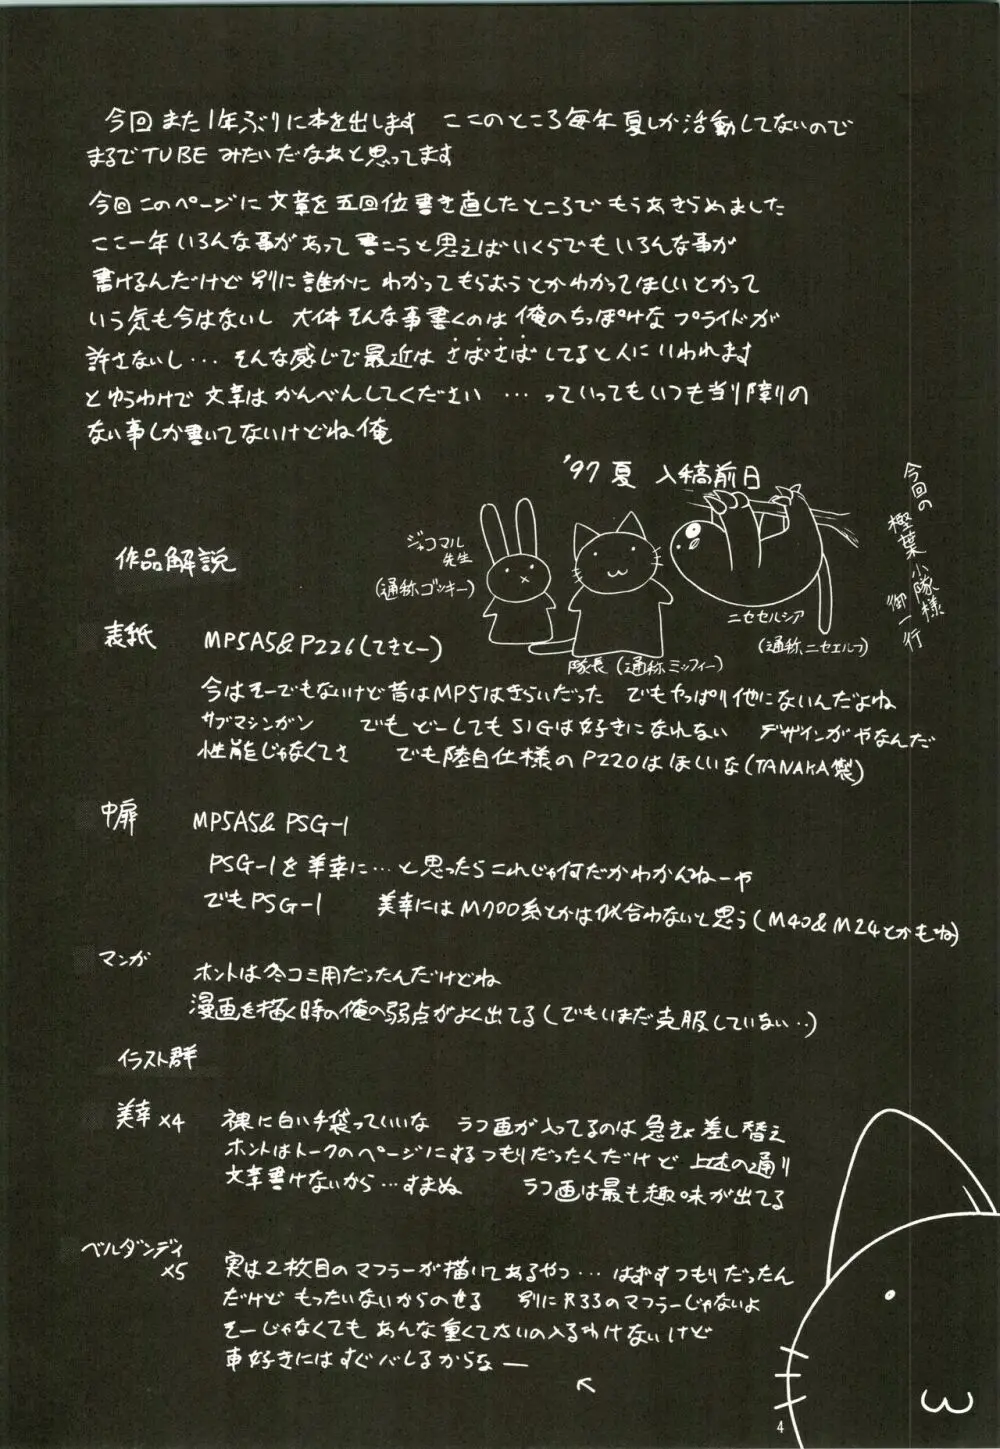 今回また1年ぶりに本を出します ここのところ毎年夏しか活動してないので
まるでTUBEみたいだなぁと思ってます
今回このページに文章を五回位書き直したところでもうあきらめました
ここ一年いろんな事があって書こうと思えばいくらでもいろんな事が
書けるんだけど別に誰かにわかってもらおうとかわかってほしいとかって
いう気も今はないし 大体そんな事書くのは俺のちっぽけなプライドが
許さないし… そんな感じで最近はさばさばしてると人にいわれます
とゆうわけで文章はかんべんしてください …っていってもいつも当り障りの
ない事しか書いてないけどね俺
'97夏 入稿前日
今回の
樫葉小隊様
御一行
ジャコマル
先生
(通称ゴッキー)
隊長(通称ミッフィー)
ニセセルシア
(通称、ニセエルフ)
作品解説
表紙 MP5A5&P226(てきとー)
今はそーでもないけど昔はMP5はきらいだった でもやっぱり他にないんだよね
サブマシンガン でもどーしてもSIGは好きになれない デザインがやなんだ
性能じゃなくてさ でも陸自仕様のP220はほしいな(TANAKA製)
中扉 MP5A5&PSG-1
PSG-1を美幸に…と思ったらこれじゃ何だかわかんねーや
でもPSG-1 美幸にはM700系とかは似合わないと思う(M40&M24とかもね)
マンガ ホントは冬コミ用だったんだけどね
漫画を描く時の俺の弱点がよく出てる(でもいまだ克服していない‥)
イラスト群
美幸×4 裸に白い手袋っていいな ラフ画が入ってるのは急きょ差し替え
ホントはトークのページにするつもりだったんだけど上述の通り
文章書けないから…すまぬ ラフ画は最も趣味が出てる
ベルダンディ
×5 実は2枚目のマフラーが描いてあるやつ…はずすつもりだったん
だけどもったいないからのせる 別にR33のマフラーじゃないよ
そーじゃなくてもあんな重くてさいの入るわけないけど
車好きにはすぐバレるからなー
4